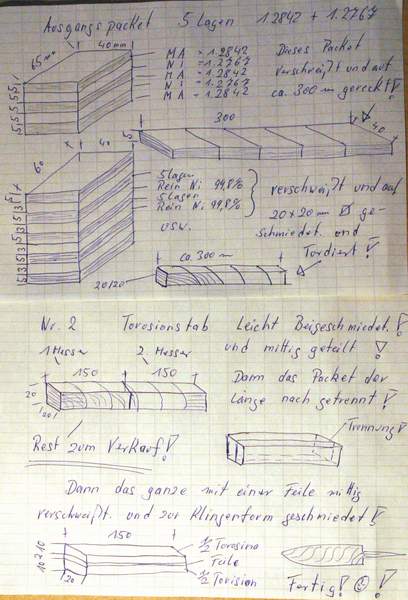 Ausgangspacket 5 Lagen 1.2842 + 1.2767
65mm 40mm
MA = 1.2842
Ni = 1.2767
MA = 1.2842
Ni = 1.2767
MA = 1.2842
Dieses Packet
verschweißt und auf
ca. 300 m gereckt!
5 5 5 5 5
300
5
40
60 40
5 Lagen
Rein Ni 99,8%
5 Lagen
Rein Ni 99,8%
usw.
verschweißt und auf
20x20 mm geschmiedet. und
Tordiert!
5 3 5 3 5 3 5 3 5
ca. 300 m
20/20
Nr. 2 Torosionstab
Leicht Beigeschmiedet!
und mittig geteilt!
1 Messer 2. Messer
150 150
20
20
Dann das Packet der
Länge nach getrennt!
Rest zum Verkauf!
Trennung!
Dann das ganze mit einer Feile mittig
verschweißt. und zur Klingenform geschmiedet!
150
10 2 10
20
1/2 Torosino
Feile
1/2 Torision
Fertig!